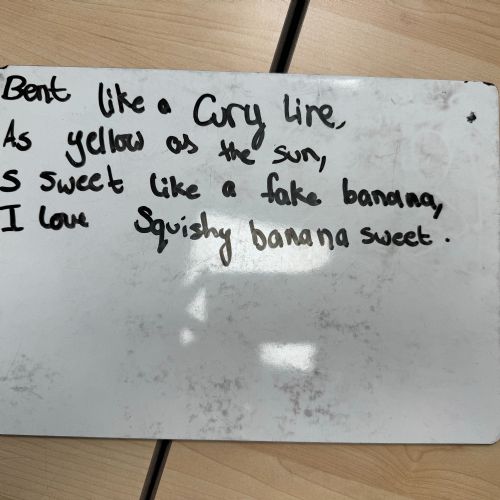 Bent like a Cury line,
As yellow as the sun,
S sweet like a fake banana,
I love Squishy banana sweet.